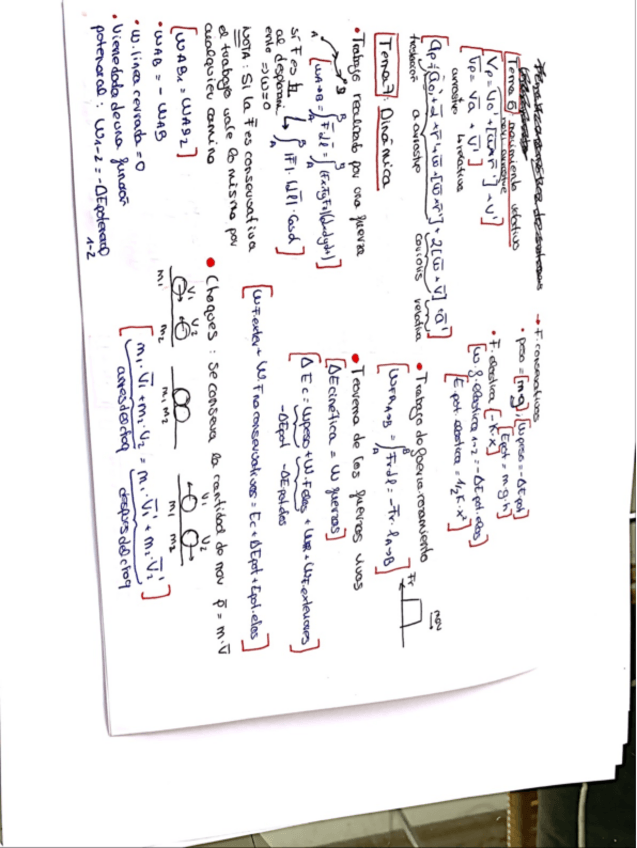 Tema 6 movimiento relativo
mov. arrastre
[Vp = Vo' + [W∧r'] + V']
[Vp = Va + V']
arrastre relativa
[ap = ao' + α∧r' + W∧[W∧r'] + 2[W∧V'] + a']
traslación a arrastre coriolis relativa
Tema 7: Dinámica
• Trabajo realizado por una fuerza
[W A→B = ∫ F dl = ∫ (Fx+Fy+Fz)(dx+dy+dz)]
si F es
al desplazami ∫ |F|·|dl|·cosα]
ento ⇒ W=0
NOTA: Si la F es conservativa
el trabajo vale lo mismo por
cualquier camino
[WAB1 = WAB2]
• WAB = -WAB
• W. línea cerrada = 0
• Viene dada de una función
potencial: W1-2 = -ΔEpotencial 1-2
→ F. conservativas
• peso = [m·g], [Wpeso = -ΔEpot]
[Epot = m·g·h]
• F. elástica [-K·x]
[W F. elástica 1-2 = -ΔEpot. elas]
[E pot. elástica = 1/2 K·x²]
• Trabajo de fuerza rozamiento
[WFR A→B = ∫ Fr dl = -Fr·l A→B]
Fr
mov
• Teorema de las fuerzas vivas
[ΔEcinética = W fuerzas]
[ΔEc = Wpeso + W.Felas + WR + WF.exteriores]
-ΔEpot -ΔEpot.elas
[WF.exter + WF.no conservativas = Ec + ΔEpot + Epot.elas]
• Choques: se conserva la cantidad de mov p = m·V
V1 V2
m1 m2
m1 m2
V1 V2
m1 m2
[m1·V1 + m2·V2 = m1·V1' + m2·V2']
antes del choq después del choq